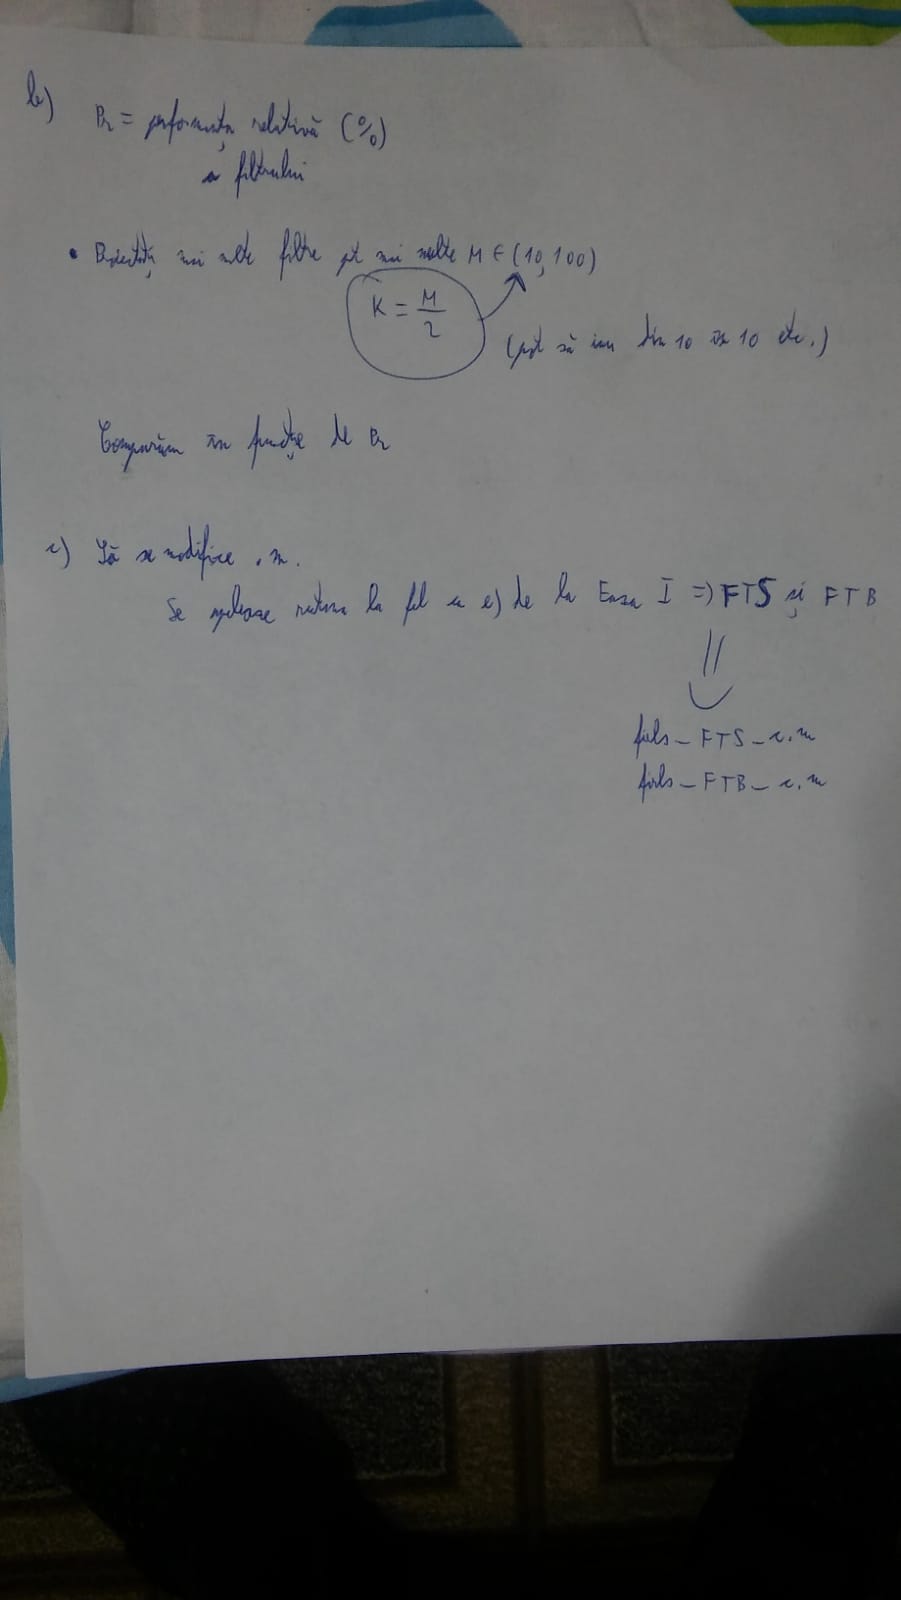 b)
Pr = performanța relativă (%)
a filtrului
• Proiectați mai multe filtre pt mai multe M ∈ (10,100)
K = M/2
(pot să iau din 10 în 10 etc.)
Comparăm în funcție de Pr
c) Să se modifice .m.
Se apelează rutina la fel ca e) de la Faza I => FTS și FTB
firls_FTS_c.m
firls_FTB_c.m